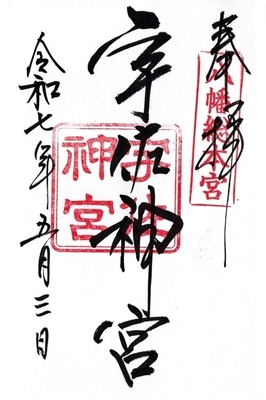 奉拝
八幡総本宮
宇佐神宮
宇佐神宮
令和七年五月三日